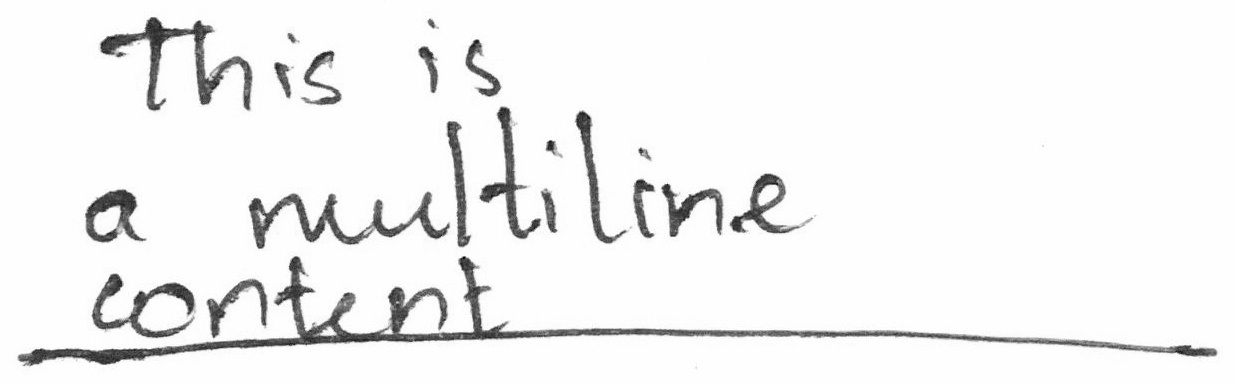 This is
a multiline
content